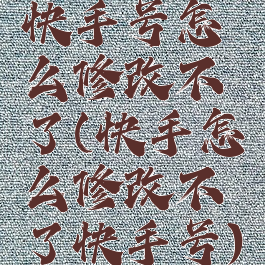 快手号怎
么修改不
了(快手怎
么修改不
了快手号)